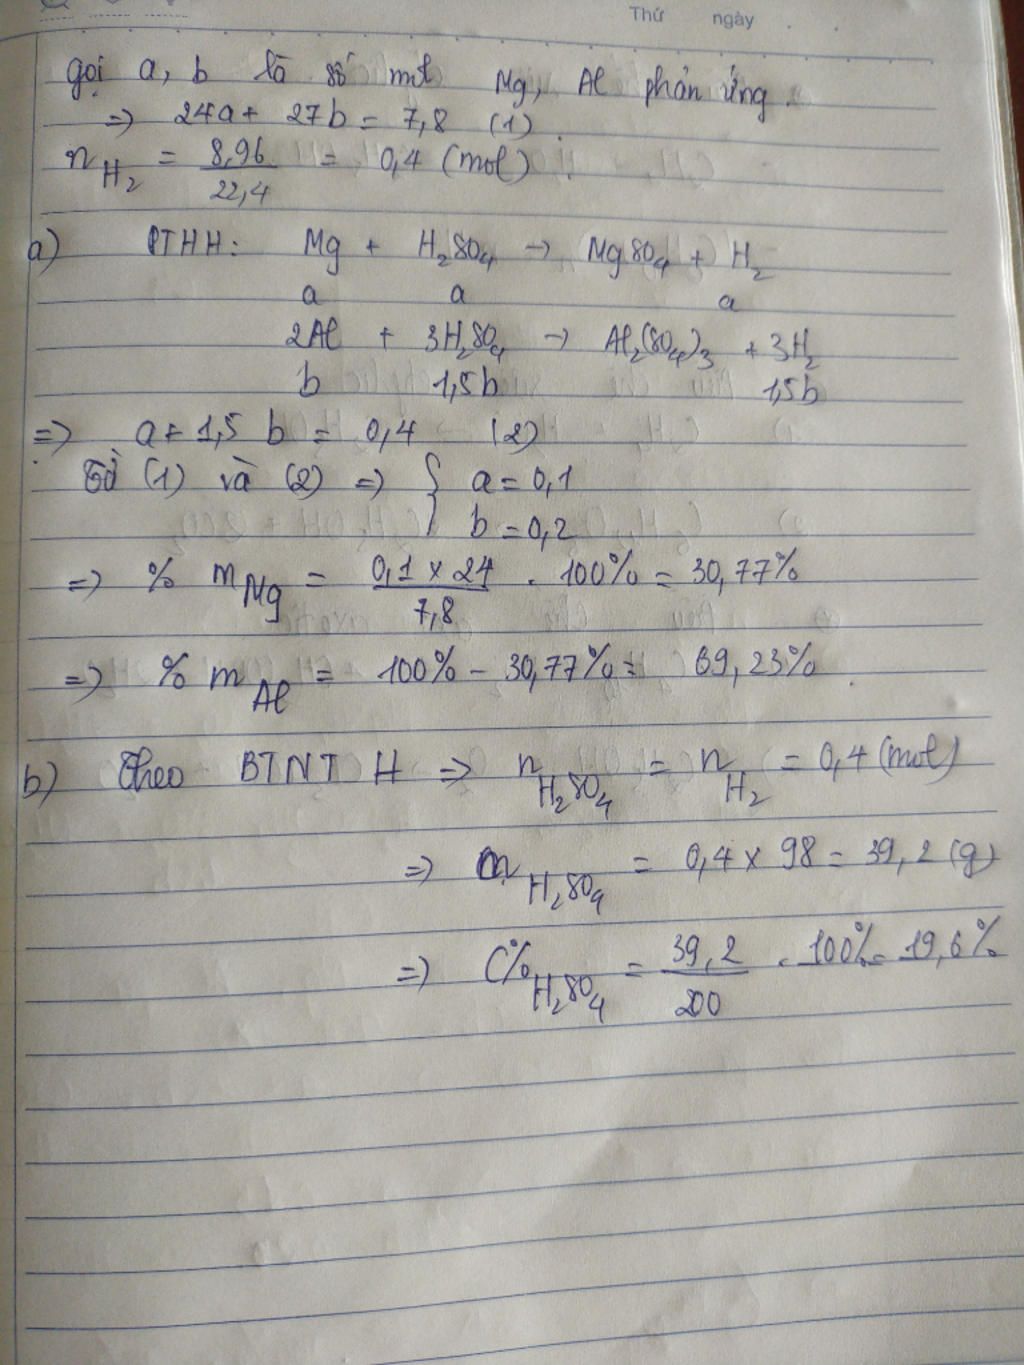 Thứ ngày
gọi a, b là số mol Mg, Al phản ứng.
=> 24a + 27b = 7,8 (1).
n H₂ = 8,96 / 22,4 = 0,4 (mol).
a) PTHH: Mg + H₂SO₄ → MgSO₄ + H₂
a a a
2Al + 3H₂SO₄ → Al₂(SO₄)₃ + 3H₂
b 1,5b 1,5b
=> a + 1,5 b = 0,4 (2)
Từ (1) và (2) => { a = 0,1
b = 0,2
=> % m Mg = 0,1 x 24 / 7,8 . 100% = 30,77%
=> % m Al = 100% - 30,77% = 69,23%.
b) Theo BTNT H => n H₂SO₄ = n H₂ = 0,4 (mol)
=> m H₂SO₄ = 0,4 x 98 = 39,2 (g)
=> C% H₂SO₄ = 39,2 / 200 . 100% = 19,6%